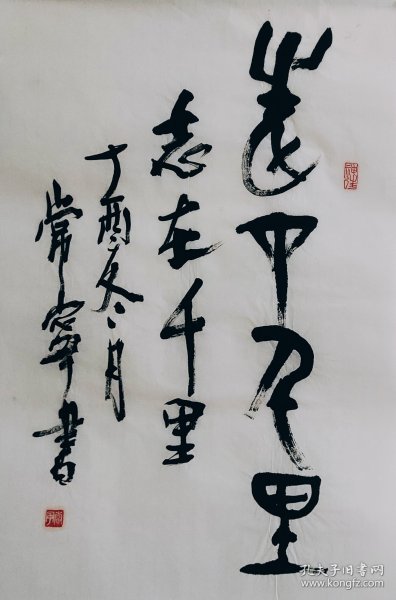 志在千里
志在千里
丁酉冬月
常宁书
孔夫子旧书网
www.kongfz.com